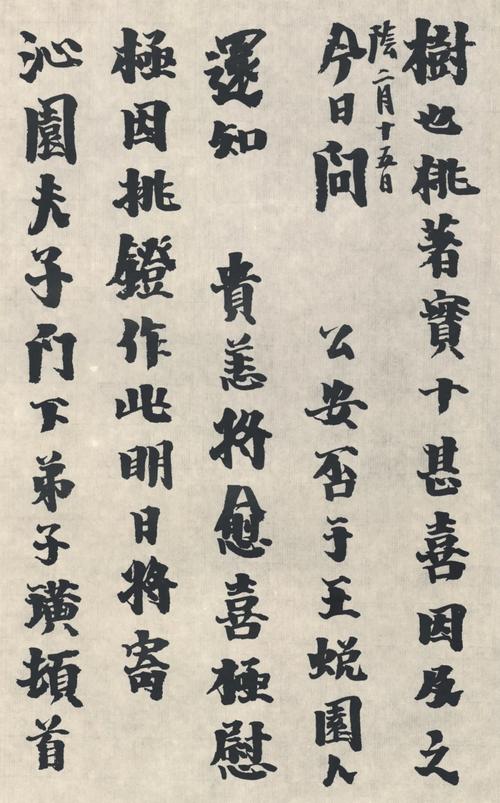 樹也桃著實十甚喜因及之
陰二月十五日
今日問 公安否于王蛻園人
運知 貴恙將愈喜極慰
極因挑鐙作此明日將寄
沁園夫子門下弟子璜頓首